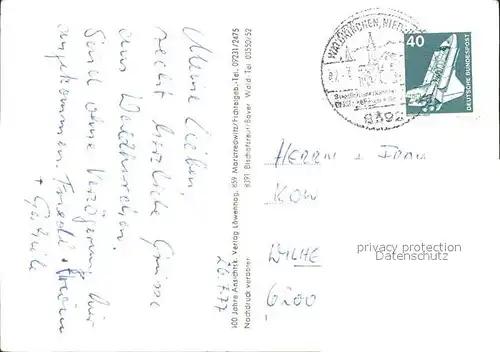 Meine Lieben
recht herzliche Grüsse
aus Waldkirchen.
Sind ohne Verzögerung hier
angekommen. Friedl + Heini
+ Gertrude
26.7.77
100 Jahre Ansichtsk. Verlag Löwenhag, 859 Marktredwitz/Fichtelgeb.-Tel. 09231/2475
Nachdruck verboten 8391 Bischofsreut/Bayer. Wald Tel. 03550/52
WALDKIRCHEN, NIEDERB
8392
40
DEUTSCHE BUNDESPOST
HERRN + FRAU
KON
6200
privacy protection
Datenschutz